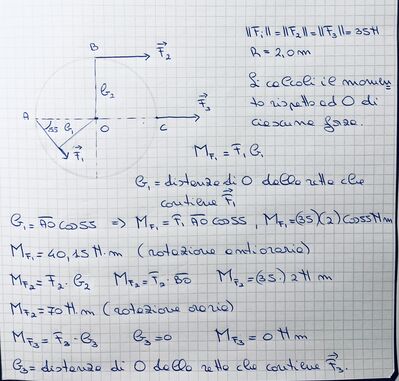 ||F₁|| = ||F₂|| = ||F₃|| = 35 N
R = 2,0 m
B
F₂
b₂
F₃
A
55
b₁
O
C
F₁
Si calcoli il momen
to rispetto ad O di
ciascuna forza.
M_F₁ = F₁ b₁
b₁ = distanza di O dalla retta che
contiene F₁
b₁ = AO cos55 => M_F₁ = F₁ AO cos55, M_F₁ = (35)(2) cos55 N m
M_F₁ = 40,15 N·m (rotazione antioraria)
M_F₂ = F₂ · b₂ M_F₂ = F₂ · BO M_F₂ = (35·) 2 N m
M_F₂ = 70 N m (rotazione oraria)
M_F₃ = F₂ · b₃ b₃ = 0 M_F₃ = 0 N m
b₃ = distanza di O dalla retta che contiene F₃.